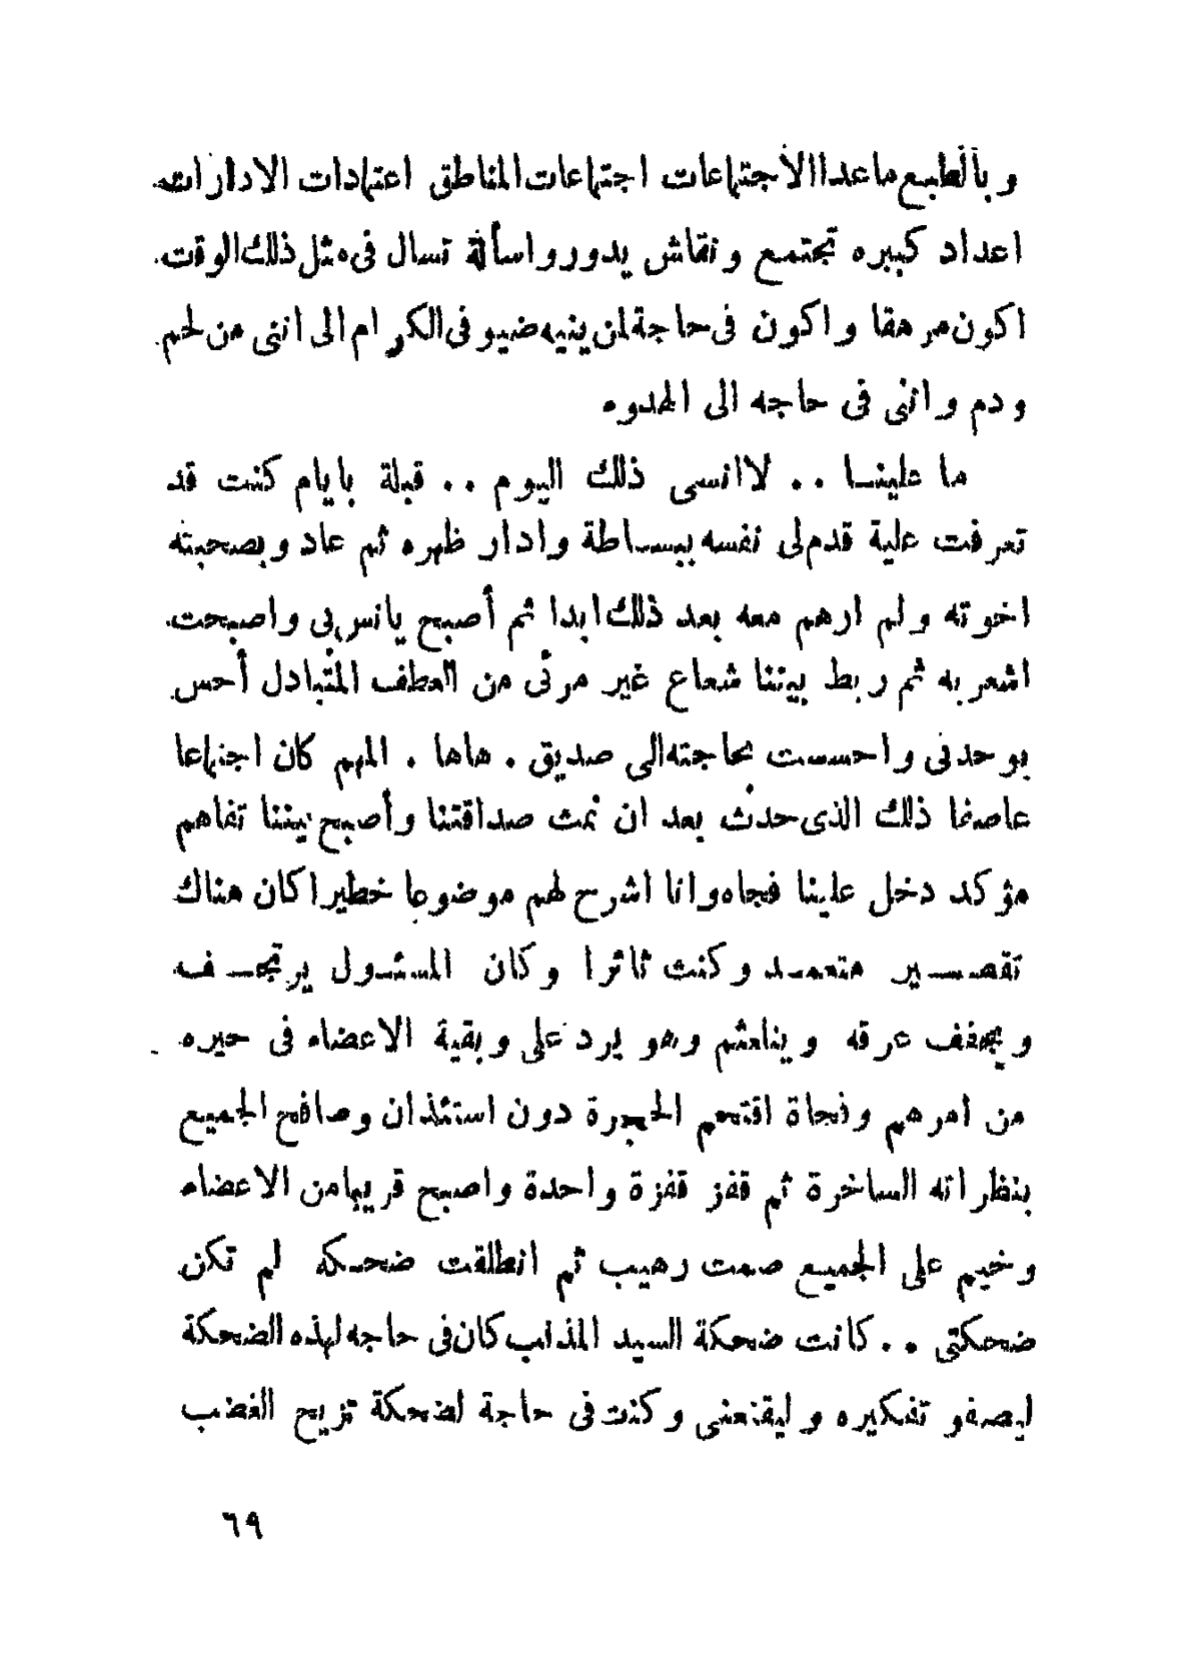 وبالطبع ماعدا الاجتماعات اجتماعات المناطق اعتمادات الادارات
اعداد كبيره تجتمع ونقاش يدور واسألة تسال فى مثل ذلك الوقت
اكون مرهقا واكون فى حاجة لمن ينبه ضيوفى الكرام الى اننى من لحم
ودم واننى فى حاجه الى الهدوء
ما علينا .. لاانسى ذلك اليوم .. قبلة بايام كنت قد
تعرفت علية قدم لى نفسه ببساطة وادار ظهره ثم عاد وبصحبته
اخوته ولم ارهم معه بعد ذلك ابدا ثم أصبح يانس بى واصبحت
اشعر به ثم ربط بيننا شعاع غير مرئى من العطف المتبادل أحس
بوحدتى واحسست بحاجته الى صديق . هاها . المهم كان اجتماعا
عاصفا ذلك الذى حدث بعد ان تمت صداقتنا وأصبح بيننا تفاهم
مؤكد دخل علينا فجاه وانا اشرح لهم موضوعا خطيرا كان هناك
تقصير متعمد وكنت ثائرا وكان المسئول يرتجف
ويجفف عرقه ويتلعثم وهو يرد على وبقية الاعضاء فى حيره
من امرهم وفجاة اقتحم الحجرة دون استئذان وصافح الجميع
بنظراته الساخرة ثم قفز قفزة واحدة واصبح قريبا من الاعضاء
وخيم على الجميع صمت رهيب ثم انطلقت ضحكه لم تكن
ضحكتى .. كانت ضحكة السيد المذنب كان فى حاجه لهذه الضحكة
ليصفو تفكيره وليقنعنى وكنت فى حاجة لضحكة تزيح الغضب
٦٩